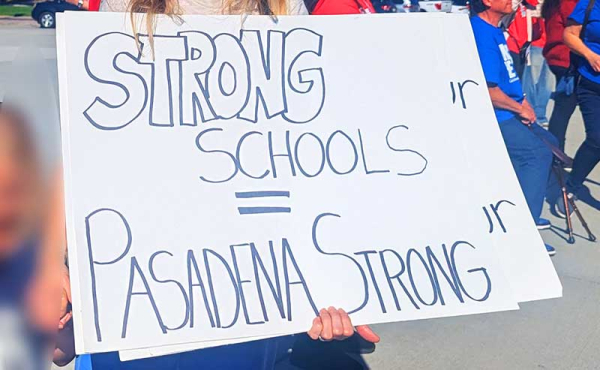 STRONG
'r
SCHOOLS
=
'r
PASADENA STRONG